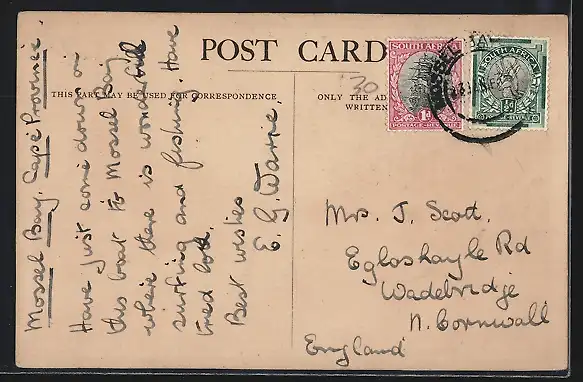 POST CARD
THIS PART MAY BE USED FOR CORRESPONDENCE
ONLY THE AD
WRITTEN
30
SOUTH AFRICA
POSTAGE-REVENUE
1d
SOUTH AFRICA
½d
MOSSEL BAY
Mossel Bay, Cape Province.
Have just come down on
this boat to Mossel Bay
where there is wonderful
surfing and fishing. Have
tried both.
Best wishes
E. G. Warne.
Mrs. J. Scott.
Egloshayle Rd
Wadebridge
N. Cornwall
England